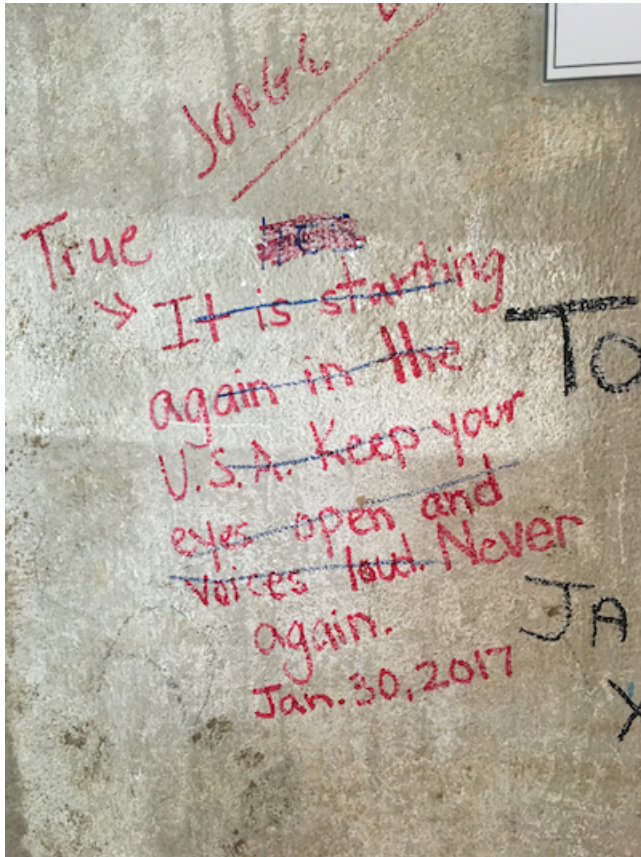 JORGE
True
It is starting
TO
again in the
U.S.A. Keep your
eyes open and
voices loud. Never
JA
again.
Jan. 30, 2017
Y